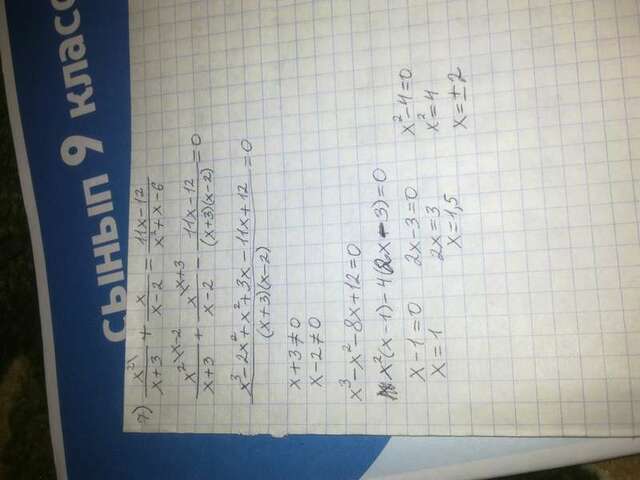 СЫНЫП 9 класс
7) x²/(x+3) + x/(x-2) = (11x-12)/(x²+x-6)
x² \x-2/(x+3) + x \x+3/(x-2) - (11x-12)/((x+3)(x-2)) = 0
(x³-2x²+x²+3x-11x+12)/((x+3)(x-2)) = 0
x+3≠0
x-2≠0
x³-x²-8x+12=0
x²(x-1)-4(2x-3)=0
x-1=0 2x-3=0 x²-4=0
x=1 2x=3 x²=4
x=1,5 x=±2